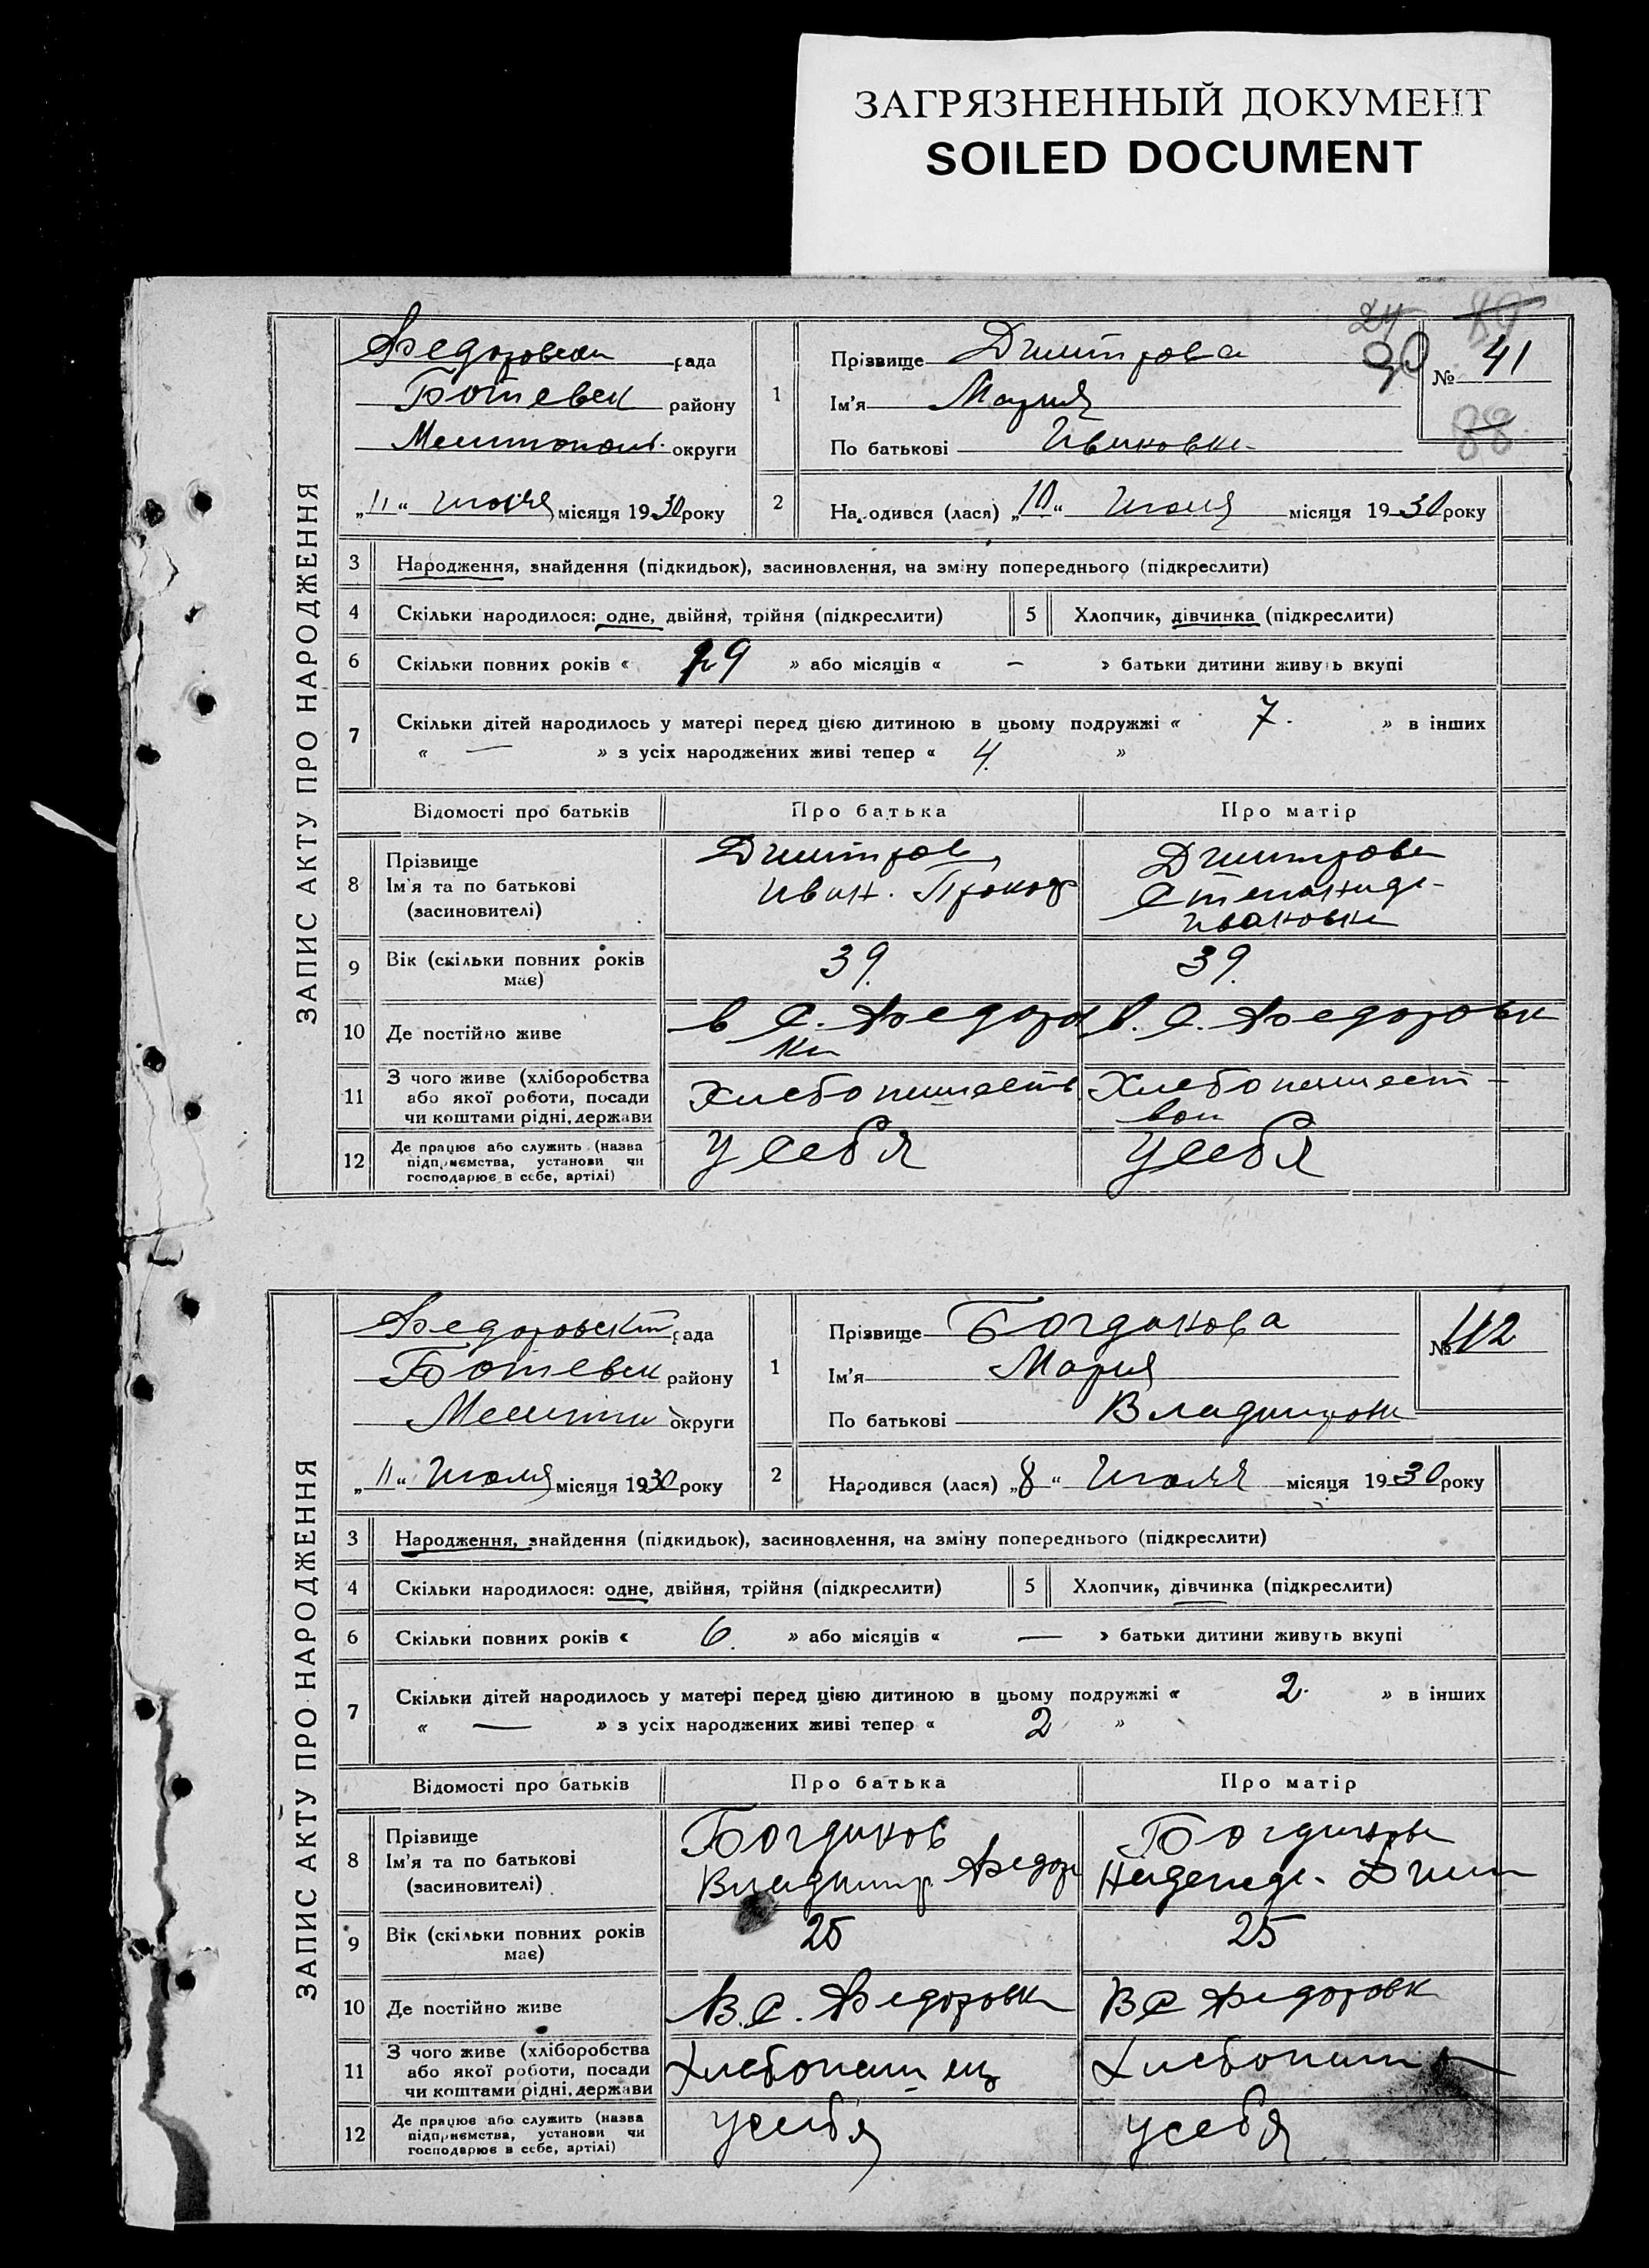 ЗАГРЯЗНЕННЫЙ ДОКУМЕНТ
SOILED DOCUMENT
ЗАПИС АКТУ ПРО НАРОДЖЕННЯ
24 89
90
Федоровск рада
Ботевск району
Мелитополь. округи
„11“ июля місяця 1930 року
1
Прізвище Дмитрова
Ім'я Мария
По батькові Ивановна
№ 41
88
2
Народився (лася) „10“ Июля місяця 1930 року
3 Народження, знайдення (підкидьок), засиновлення, на зміну попереднього (підкреслити)
4 Скільки народилося: одне, двійня, трійня (підкреслити) 5 Хлопчик, дівчинка (підкреслити)
6 Скільки повних років « 29 » або місяців « — » батьки дитини живуть вкупі
7 Скільки дітей народилось у матері перед цією дитиною в цьому подружжі « 7. » в інших
« — » з усіх народжених живі тепер « 4. »
Відомості про батьків Про батька Про матір
8 Прізвище Ім'я та по батькові (засновителі)
Дмитров Иван. Прокоф
Дмитрова Степанида Ивановна
9 Вік (скільки повних років має) 39. 39.
10 Де постійно живе в С. Федоровки в. С. Федоровки
11 З чого живе (хліборобства або якої роботи, посади чи коштами рідні, держави
Хлебопашеств Хлебопашест-вом
12 Де працює або служить (назва підприємства, установи чи господарює в себе, артілі)
У себя У себя
ЗАПИС АКТУ ПРО НАРОДЖЕННЯ
Федоровск рада
Ботевск району
Мелитоп округи
„11“ Июля місяця 1930 року
1
Прізвище Богданова
Ім'я Мария
По батькові Владимировн
№ 42
2
Народився (лася) „8“ Июля місяця 1930 року
3 Народження, знайдення (підкидьок), засиновлення, на зміну попереднього (підкреслити)
4 Скільки народилося: одне, двійня, трійня (підкреслити) 5 Хлопчик, дівчинка (підкреслити)
6 Скільки повних років « 6. » або місяців « — » батьки дитини живуть вкупі
7 Скільки дітей народилось у матері перед цією дитиною в цьому подружжі « 2. » в інших
« — » з усіх народжених живі тепер « 2 »
Відомості про батьків Про батька Про матір
8 Прізвище Ім'я та по батькові (засиновителі)
Богданов Владимир Федор
Богданова Надежда. Дмит
9 Вік (скільки повних років має) 25 25
10 Де постійно живе В. С. Федоровк В С Федоровк
11 З чого живе (хліборобства або якої роботи, посади чи коштами рідні, держави
Хлебопашец Хлебопаш
12 Де працює або служить (назва підприємства, установи чи господарює в себе, артілі)
у себя у себя